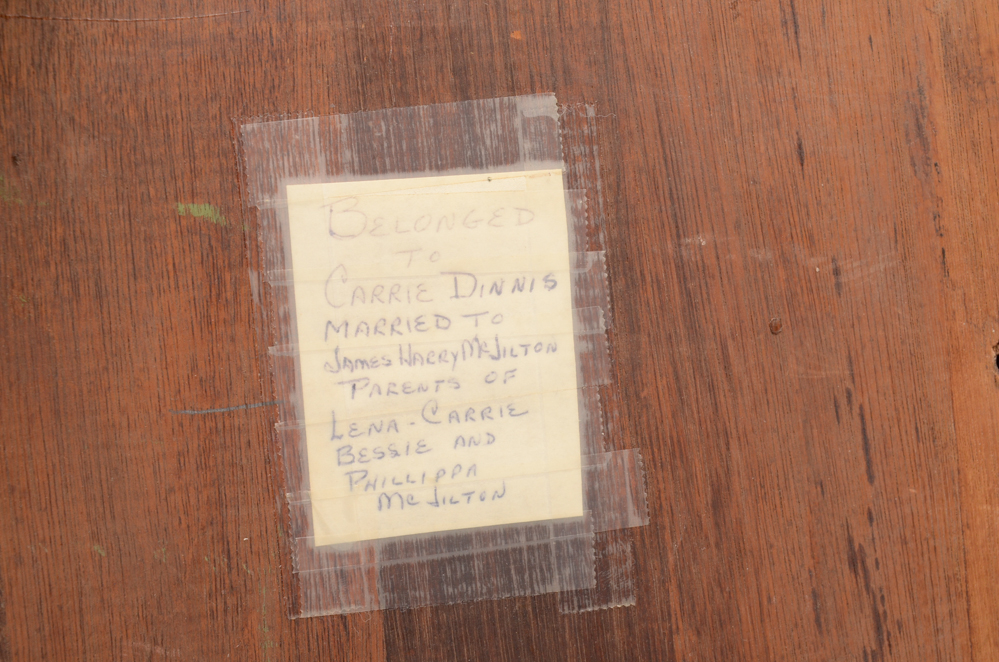 BELONGED
TO
CARRIE DINNIS
MARRIED TO
JAMES HARRY MCJILTON
PARENTS OF
LENA-CARRIE
BESSIE AND
PHILLIPPA
MC JILTON